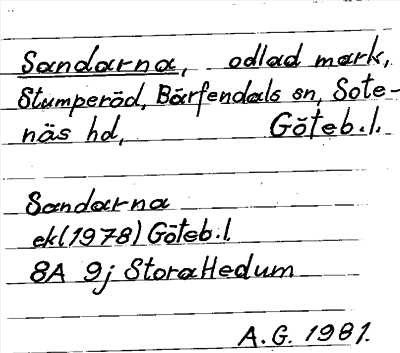 Sandarna, odlad mark,
Stumperöd, Bärfendals sn, Sote-
näs hd, Göteb.l.
Sandarna
ek(1978) Göteb.l.
8A 9j Stora Hedum
A.G. 1981.